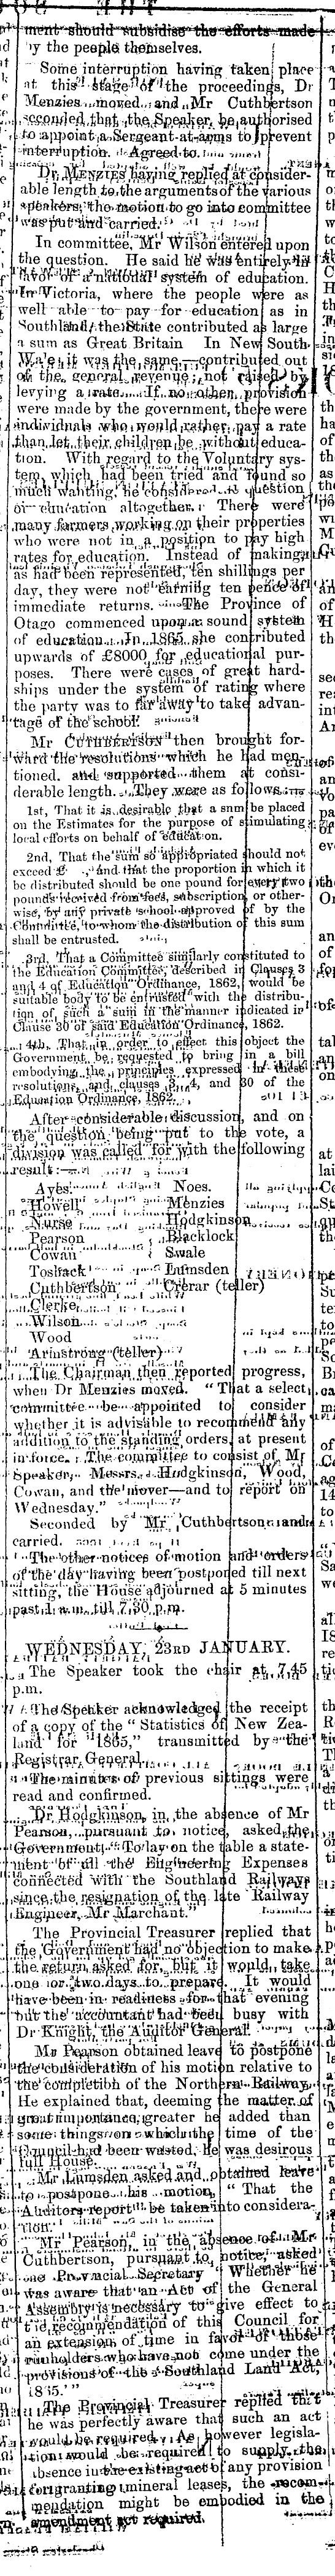 ment should subsidise the efforts made
by the people themselves.
Some interruption having taken place
at this stage of the proceedings, Dr
Menzies moved and Mr Cuthbertson
seconded that the Speaker be authorised
to appoint a Sergeant-at-arms to prevent
interruption. Agreed to.
Dr MENZIES having replied at consider-
able length to the arguments of the various
speakers, the motion to go into committee
was put and carried.
In committee, Mr Wilson entered upon
the question. He said he was entirely in
favor of a national system of education.
In Victoria, where the people were as
well able to pay for education as in
Southland, the State contributed as large
a sum as Great Britain In New South
Wales it was the same—contributed out
of the general revenue; not raised by
levying a rate. If no other provision
were made by the government, there were
individuals who would rather pay a rate
than let their children be without educa-
tion. With regard to the Voluntary sys-
tem, which had been tried and found so
much wanting, he considered question
of education altogether. There were
many farmers working on their properties
who were not in a position to pay high
rates for education. Instead of making,
as had been represented, ten shillings per
day, they were not earning ten pence of
immediate returns. The Province of
Otago commenced upon a sound system
of education. In 1865 she contributed
upwards of £8000 for educational pur-
poses. There were cases of great hard-
ships under the system of rating where
the party was to far away to take advan-
tage of the school.
Mr CUTHBERTSON then brought for-
ward the resolutions which he had men-
tioned, and supported them at consi-
derable length. They were as follows:—
1st, That it is desirable that a sum be placed
on the Estimates for the purpose of stimulating
local efforts on behalf of education.
2nd, That the sum so appropriated should not
exceed £ , and that the proportion in which it
be distributed should be one pound for every two
pounds received from fees, subscription, or other-
wise, by any private school approved of by the
Committee, to whom the distribution of this sum
shall be entrusted.
3rd, That a Committee similarly constituted to
the Education Committee, described in Clauses 3
and 4 of Education Ordinance, 1862, would be
suitable body to be entrusted with the distribu-
tion of such a sum in the manner indicated in
Clause 30 of said Education Ordinance, 1862.
4th, That in order to effect this object the
Government be requested to bring in a bill
embodying the principles expressed in these
resolutions, and clauses 3, 4, and 30 of the
Education Ordinance, 1862.
After considerable discussion, and on
the question being put to the vote, a
division was called for with the following
result:—
Ayes. Noes.
Howell Menzies
Nurse Hodgkinson
Pearson Blacklock
Cowan Swale
Toshack Lumsden
Cuthbertson Cterar (teller)
Clerke
Wilson
Wood
Armstrong (teller)
The Chairman then reported progress,
when Dr Menzies moved. "That a select
committee be appointed to consider
whether it is advisable to recommend any
addition to the standing orders, at present
in force. The committee to consist of Mr
Speaker, Messrs. Hodgkinson, Wood,
Cowan, and the mover—and to report on
Wednesday."
Seconded by Mr Cuthbertson and
carried.
The other notices of motion and orders
of the day having been postponed till next
sitting, the House adjourned at 5 minutes
past 1 a.m. till 7.30 p.m.
WEDNESDAY, 23RD JANUARY.
The Speaker took the chair at 7.45
p.m.
The Speaker acknowledged the receipt
of a copy of the "Statistics of New Zea-
land for 1865," transmitted by the
Registrar General
The minutes of previous sittings were
read and confirmed.
Dr Hodgkinson, in the absence of Mr
Pearson, pursuant to notice, asked the
Government, "To lay on the table a state-
ment of all the Engineering Expenses
connected with the Southland Railways
since the resignation of the late Railway
Engineer, Mr Marchant."
The Provincial Treasurer replied that
the Government had no objection to make
the return asked for, but it would take
one or two days to prepare. It would
have been in readiness for that evening
but the accountant had been busy with
Dr Knight, the Auditor General.
Mr Pearson obtained leave to postpone
the consideration of his motion relative to
the completion of the Northern Railway.
He explained that, deeming the matter of
great importance, greater he added than
some things on which the time of the
Council had been wasted, he was desirous
full House.
Mr Lumsden asked and obtained leave
to postpone his motion, "That the
Auditors report be taken into considera-
tion."
Mr Pearson, in the absence of Mr
Cuthbertson, pursuant to notice, asked
the Provincial Secretary "Whether he
was aware that an Act of the General
Assembly is necessary to give effect to
the recommendation of this Council for
an extension of time in favor of those
runholders who have not come under the
provisions of the Southland Land Act,
1865."
The Provincial Treasurer replied that
he was perfectly aware that such an act
would be required. As however legisla-
tion would be required to supply the
absence in the existing act of any provision
for granting mineral leases, the recom-
mendation might be embodied in the
amendment act required.